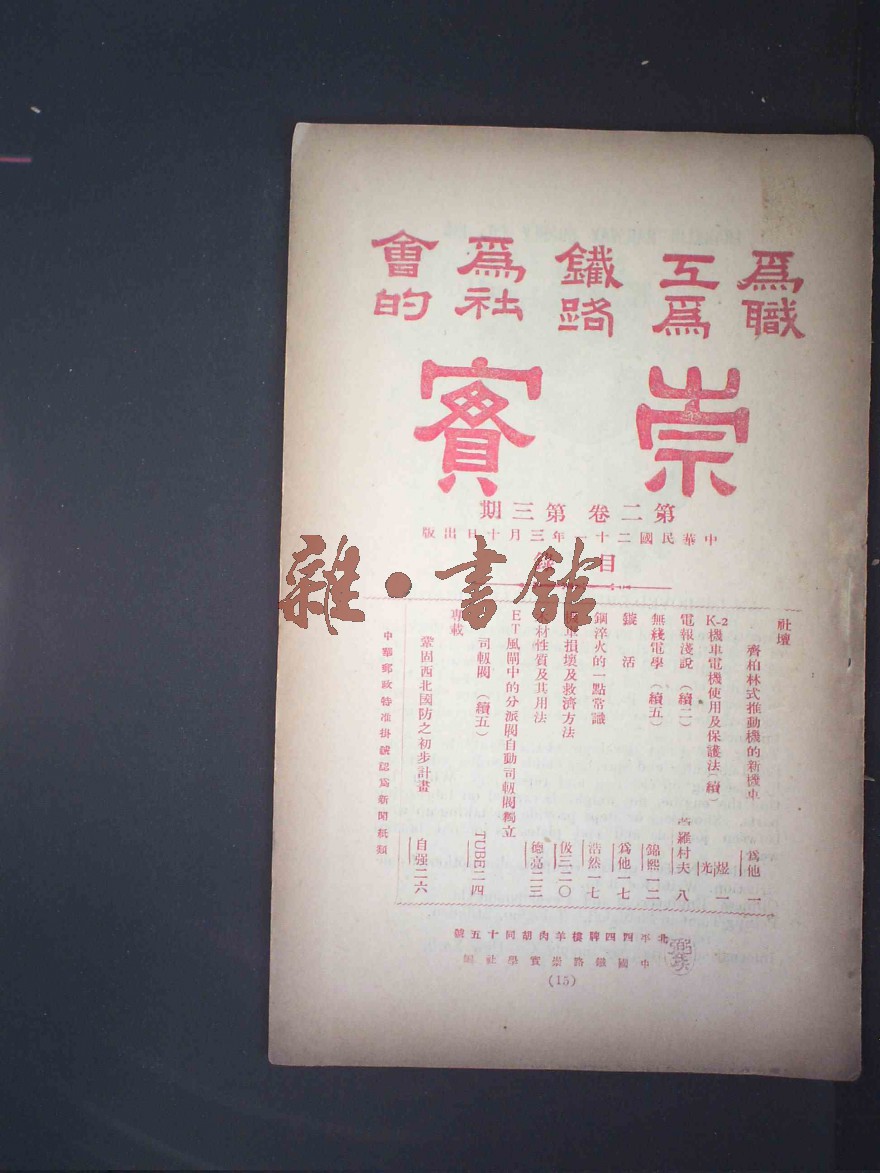 爲職
工爲
鐵路
爲社
會的
崇實
第二卷第三期
中華民國二十一年三月十日出版
目錄
社壇
齊柏林式推動機的新機車 爲他 一
K-2機車電機使用及保護法(續) 煜光 一
電報淺說(續二) 羅村夫 八
無綫電學(續五) 錦熙 一二
鏇活 爲他 一七
鋼淬火的一點常識 浩然 一七
車損壞及救濟方法 伋三 二〇
材性質及其用法 德亮 二三
ET風閘中的分派閥自動司軔閥獨立
司軔閥(續五) TUBE 二四
專載
鞏固西北國防之初步計畫 自强 二六
中華郵政特准掛號認爲新聞紙類
北平西四牌樓羊肉胡同十五號
中國鐵路崇實學社編
(15)
雜·書館